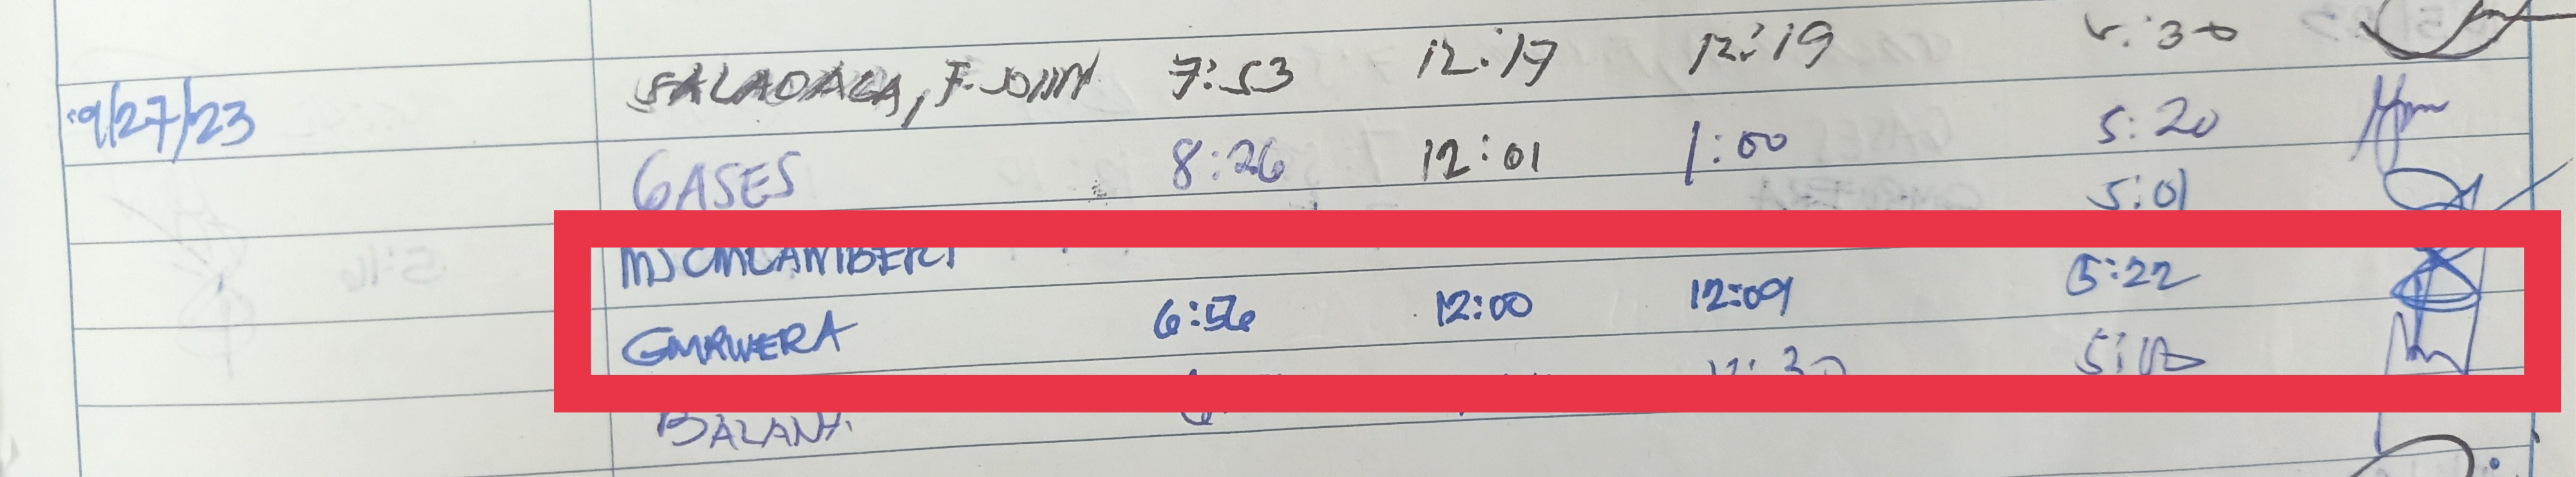 9/27/23 SALADAGA, F. JOHN 7:53 12:17 12:19 5:30
GASES 8:26 12:01 1:00 5:20
5:01
GMRWERA 6:56 12:00 12:09 5:22
12:30